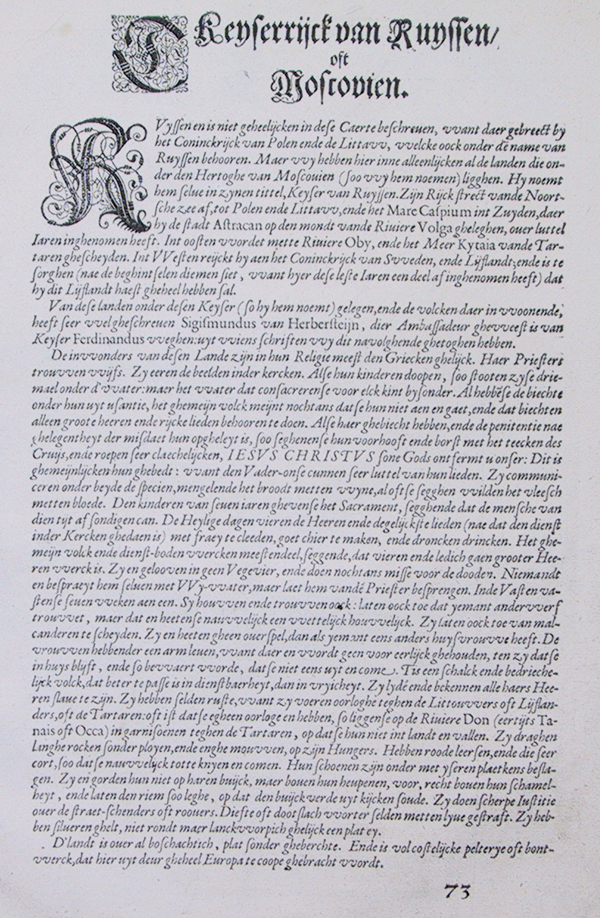 T Keyserrijck van Ruyssen/
oft
Moscovien.
RVyssen en is niet geheelijcken in dese Caerte beschreuen, vvant daer gebreect by
het Coninckrijck van Polen ende de Littavv, vvelcke oock onder dē name van
Ruyssen behooren. Maer vvy hebben hier inne alleenlijcken al de landen die on-
der den Hertoghe van Moscouien (soo vvy hem noemen) ligghen. Hy noemt
hem selue in zynen tittel, Keyser van Ruyssen. Zijn Rijck strect vande Noort-
sche zee af, tot Polen ende Littavv, ende het Mare Caspium int Zuyden, daer
hy de stadt Astracan op den mondt vande Riuiere Volga gheleghen, ouer luttel
Iaren inghenomen heeft. Int oosten vvordet mette Riuiere Oby, ende het Meer Kytaia vande Tar-
taren ghescheyden. Int VVesten reijckt hy aen het Coninckrijck van Svveden, ende Lijflandt; ende is te
sorghen (nae de beghintselen diemen siet, vvant hy er dese leste Iaren een deel af inghenomen heeft) dat
hy dit Lijflandt haest gheheel hebben sal.
Van dese landen onder desen Keyser (so hy hem noemt) gelegen, ende de volcken daer in vvoonende,
heeft seer vvel gheschreuen Sigismundus van Herbersteijn, dier Ambassadeur ghevveest is van
Keyser Ferdinandus vveghen: uyt vviens schriften vvy dit navolghende ghetoghen hebben.
De invvonders van desen Lande zijn in hun Religie meest den Griecken ghelijck. Haer Priesters
trouvven vvijfs. Zy eeren de beelden inder kercken. Alse hun kinderen doopen, soo stooten zyse drie-
mael onder d'vvater: maer het vvater dat consacrerense voor elck kint bysonder. Al hebbēse de biechte
onder hun uyt usantie, het ghemeijn volck meijnt nochtans datse hun niet aen en gaet, ende dat biechten
alleen groote heeren ende rijcke lieden behooren te doen. Alse haer ghebiecht hebben, ende de penitentie nae
ghelegentheyt der misdaet hun opgheleyt is, soo seghenense hun voorhooft ende borst met het teecken des
Cruijs, ende roepen seer claechelijcken, IESVS CHRISTVS sone Gods ontfermt u onser: Dit is
ghemeijnlijcken hun ghebedt: vvant den Vader-onse cunnen seer luttel van hun lieden. Zy communi-
ceren onder beyde de specien, mengelende het broodt metten vvyne, al oftse segghen vvilden het vleesch
metten bloede. Den kinderen van seuen iaren ghevense het Sacrament, segghende dat de mensche van
dien tijt af sondigen can. De Heylige dagen vieren de Heeren ende degelijckste lieden (nae dat den dienst
inder Kercken ghedaen is) met fraey te cleeden, goet chier te maken, ende droncken drincken. Het ghe-
meijn volck ende dienst-boden vvercken meestendeel, seggende, dat vieren ende ledich gaen grooter Hee-
ren vverck is. Zy en gelooven in geen Vegevier, ende doen nochtans misse voor de dooden. Niemandt
en bespraeyt hem seluen met VVy-vvater, maer laet hem vandē Priester besprengen. Inde Vasten va-
stense seuen vveken aen een. Sy houvven ende trouvven oock: laten oock toe dat yemant andervverf
trouvvet, maer dat en heetense nauvvelijck een vvettelijck houvvelijck. Zy laten oock toe van mal-
canderen te scheyden. Zy en heeten gheen ouerspel, dan als yemant eens anders huysvrouvve heeft. De
vrouvven hebbender een arm leuen, vvant daer en vvordt geen voor eerlijck ghehouden, ten zy datse
in huys blijft, ende so bevvaert vvorde, datse niet eens uyt en come. T is een schalck ende bedrieche-
lijck volck, dat beter te passe is in dienstbaerheyt, dan in vryicheyt. Zy lydē ende bekennen alle haers Hee-
ren slaue te zijn. Zy hebben selden ruste, vvant zy voeren oorloghe teghen de Littouvvers oft Lijflan-
ders, oft de Tartaren: oft ist datse egheen oorloge en hebben, so liggense op de Riuiere Don (eertijts Ta-
nais oft Occa) in garnisoenen teghen de Tartaren, op datse hun niet int landt en vallen. Zy draghen
langhe rocken sonder ployen, ende enghe mouvven, op zijn Hungers. Hebben roode leersen, ende die seer
cort, soo datse nauvvelijck totte knyen en comen. Hun schoenen zijn onder met yseren plaetkens besla-
gen. Zy en gorden hun niet op haren buijck, maer bouen hun heupenen, voor, recht bouen hun schamel-
heyt, ende laten den riem soo leghe, op dat den buijck verde uyt kijcken soude. Zy doen scherpe Iustitie
ouer de straet-schenders oft roouers. Diefte oft dootslach vvorter selden metten lyue gestraft. Zy heb-
ben silueren ghelt, niet rondt maer lanckvvorpich ghelijck een plat ey.
D'landt is ouer al boschachtich, plat sonder gheberchte. Ende is vol costelijcke pelterye oft bont-
vverck, dat hier uyt deur gheheel Europa te coope ghebracht vvordt.
73